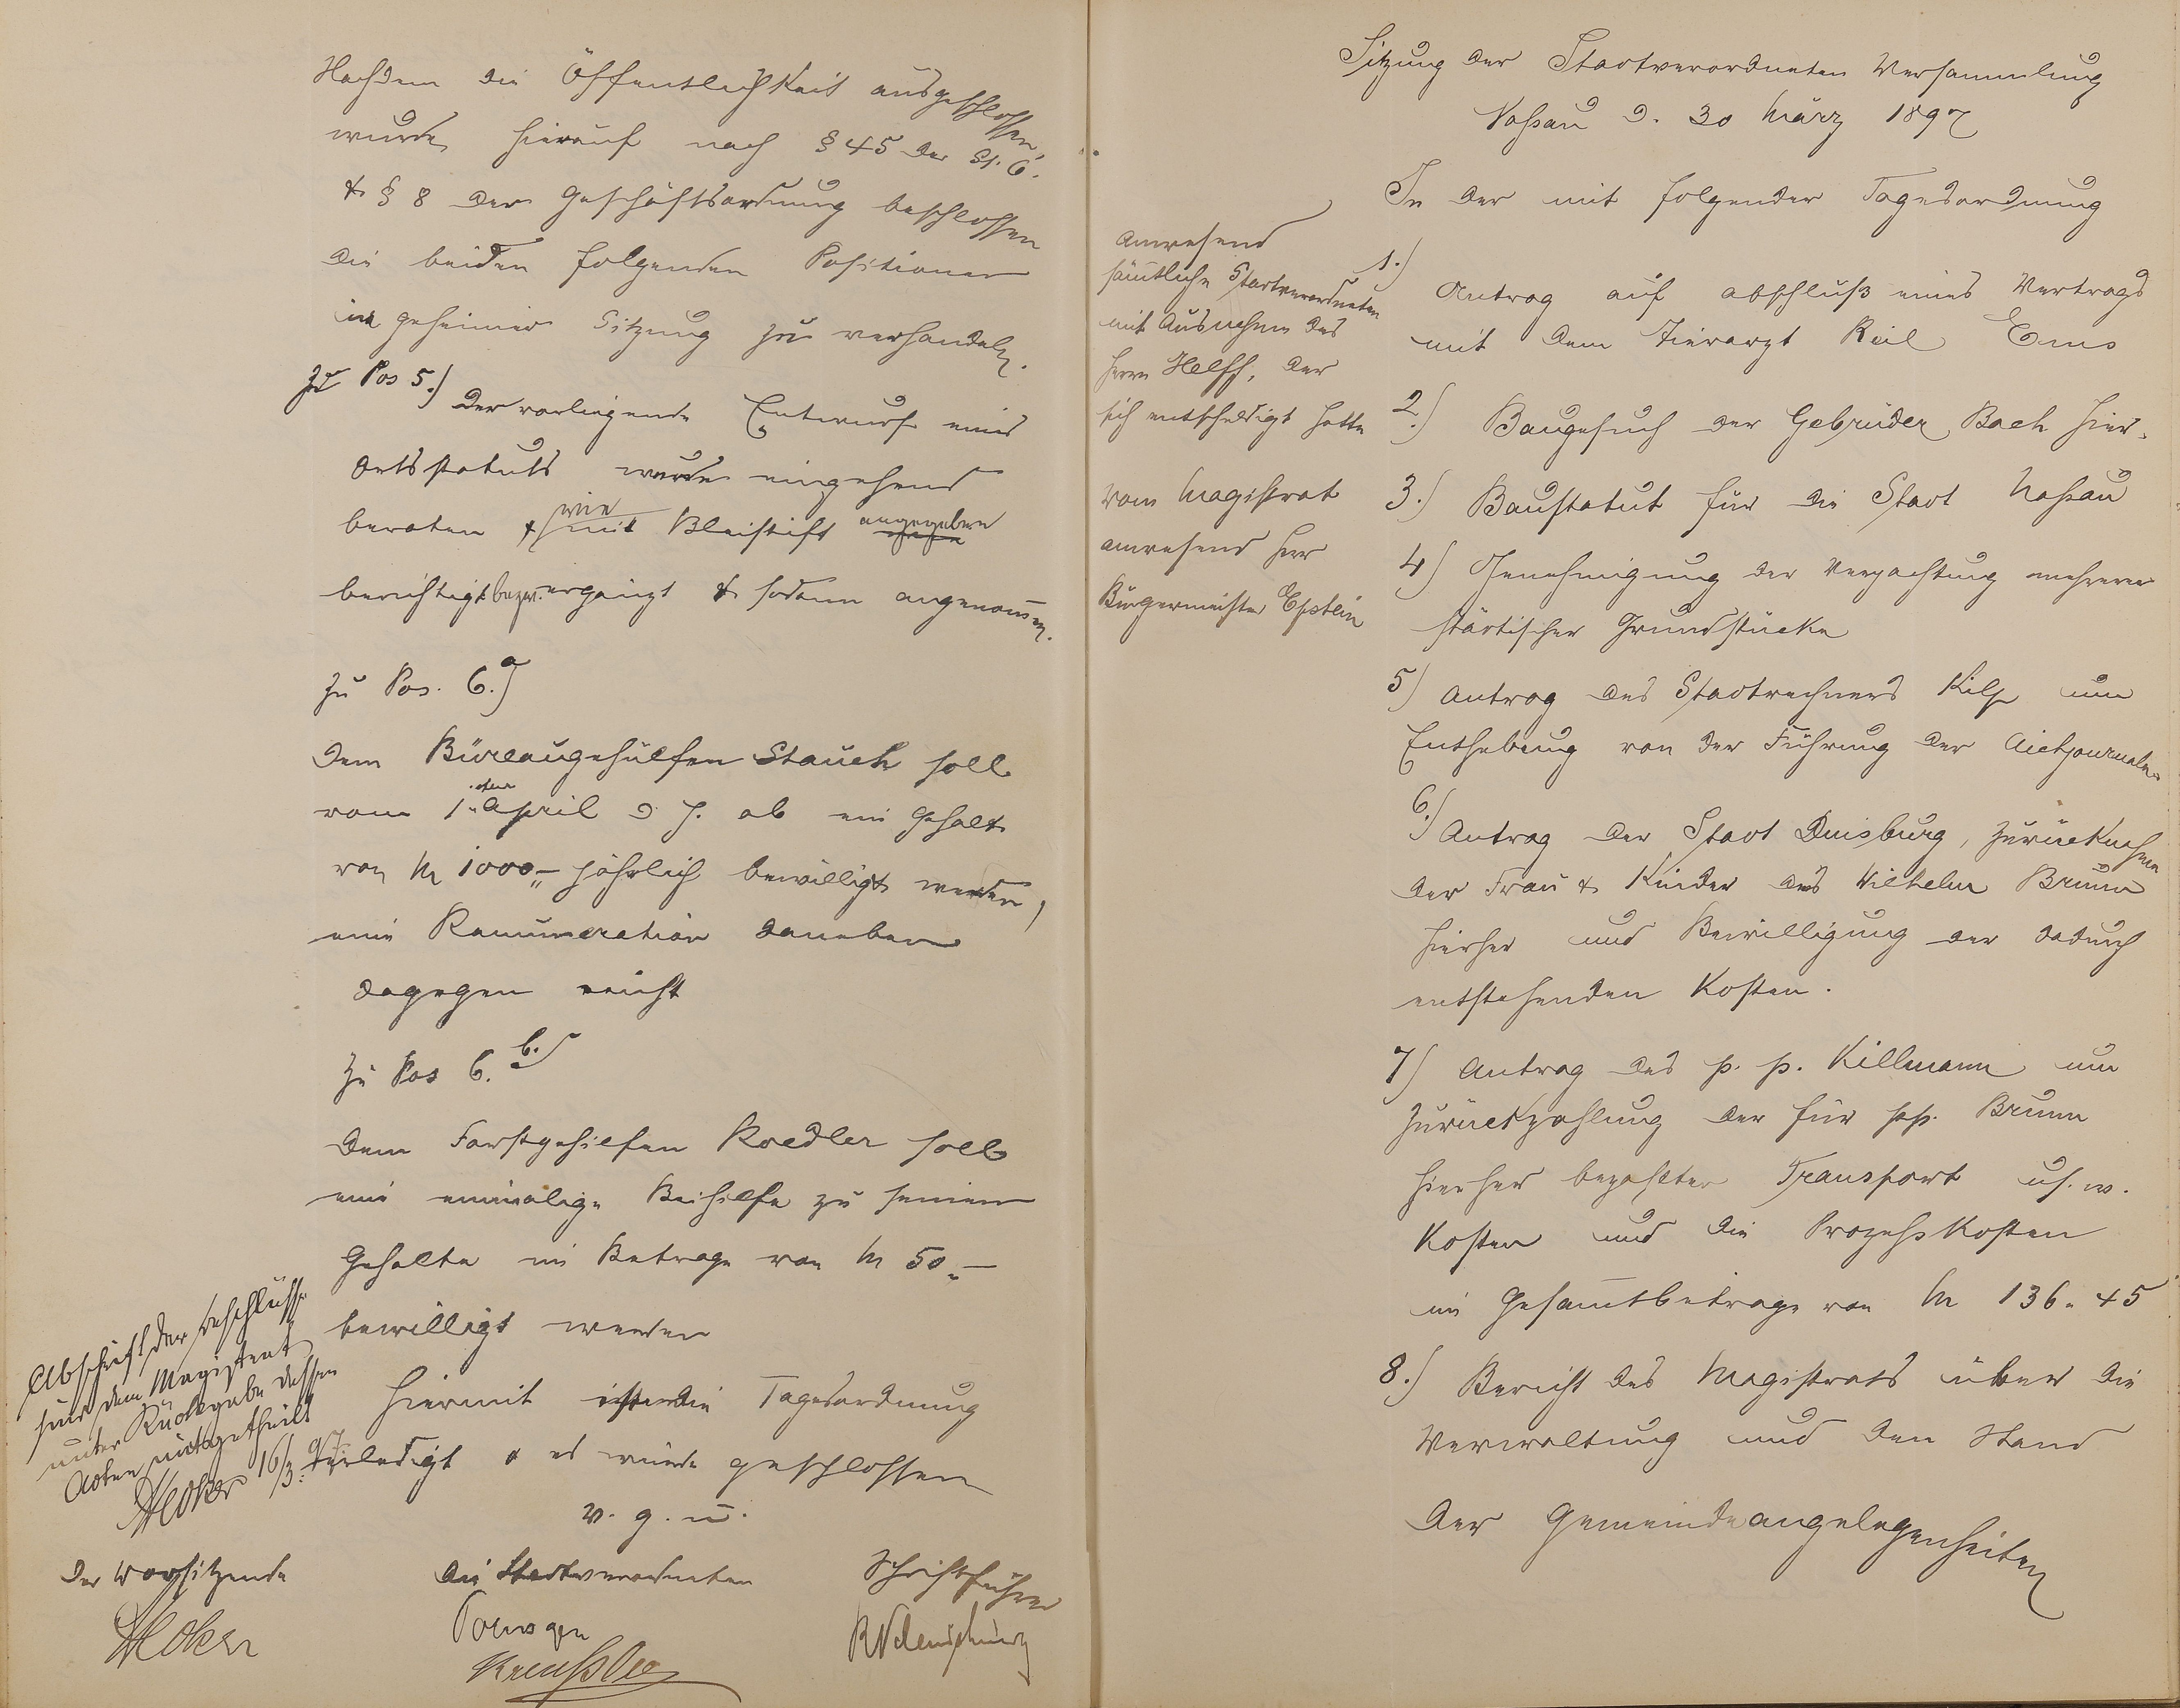 Nachdem die Öffentlichkeit ausgeschlossen,
wurde hierauf nach § 45 der St. O.
& § 8 der Geschäftsordnung beschlossen
die beiden folgenden Positionen
in geheimer Sitzung zu verhandeln.
Zu Pos 5.) Der vorliegende Entwurf eines
Ortsstatuts wurde eingehend
beraten & wie mit Bleistift angegeben
berichtigt bezw. ergänzt & sodann angenom̄en.
Zu Pos. 6.a)
Dem Büreaugehülfen Stauch soll
vom 1ten April d J. ab ein Gehalt
von M 1000,,– jährlich bewilligt werden,
eine Remuneration daneben
dagegen nicht
Zu Pos 6. b.)
Dem Forstgehilfen Roedler soll
eine einmalige Beihilfe zu seinem
Gehalte im Betrage von M 50,,–
bewilligt werden
Hiermit ist die Tagesordnung
erledigt & es wurde geschlossen
v. g. u.
Abschrift der Beschlüsse
sind dem Magistrat
unter Rückgabe dessen
Acten mitgetheilt
16/3. 97.
Der Vorsitzende
Die Stadtverordneten
Schriftführer
Sitzung der Stadtverordneten Versammlung
Nassau d. 30 März 1897
In der mit folgender Tagesordnung
Anwesend
sämtliche Stadtverordneten
mit Ausnahme des
Herrn Helff, der
sich entschuldigt hatte
vom Magistrat
anwesend Herr
Bürgermeister Epstein
1.) Antrag auf Abschluß eines Vertrags
mit dem Tierarzt Keil Ems
2.) Baugesuch der Gebrüder Bach hier.
3.) Baustatut für die Stadt Naßau
4) Genehmigung der Verpachtung mehrerer
städtischer Grundstücke
5) Antrag des Stadtrechners Kilp um
Enthebung von der Führung der
6.) Antrag der Stadt Duisburg, Zurücknahme
der Frau & Kinder des Wilhelm Brunn
hierher und Bewilligung der dadurch
entstehenden Kosten.
7) Antrag des p. p. Killmann um
Zurückzahlung der für pp. Brunn
hierher bezahlten Transport u. s. w.
Kosten und die Prozeßkosten
im Gesam̄tbetrage von M 136,, 45
8.) Bericht des Magistrats über die
Verwaltung und den Stand
der Gemeindeangelegenheiten